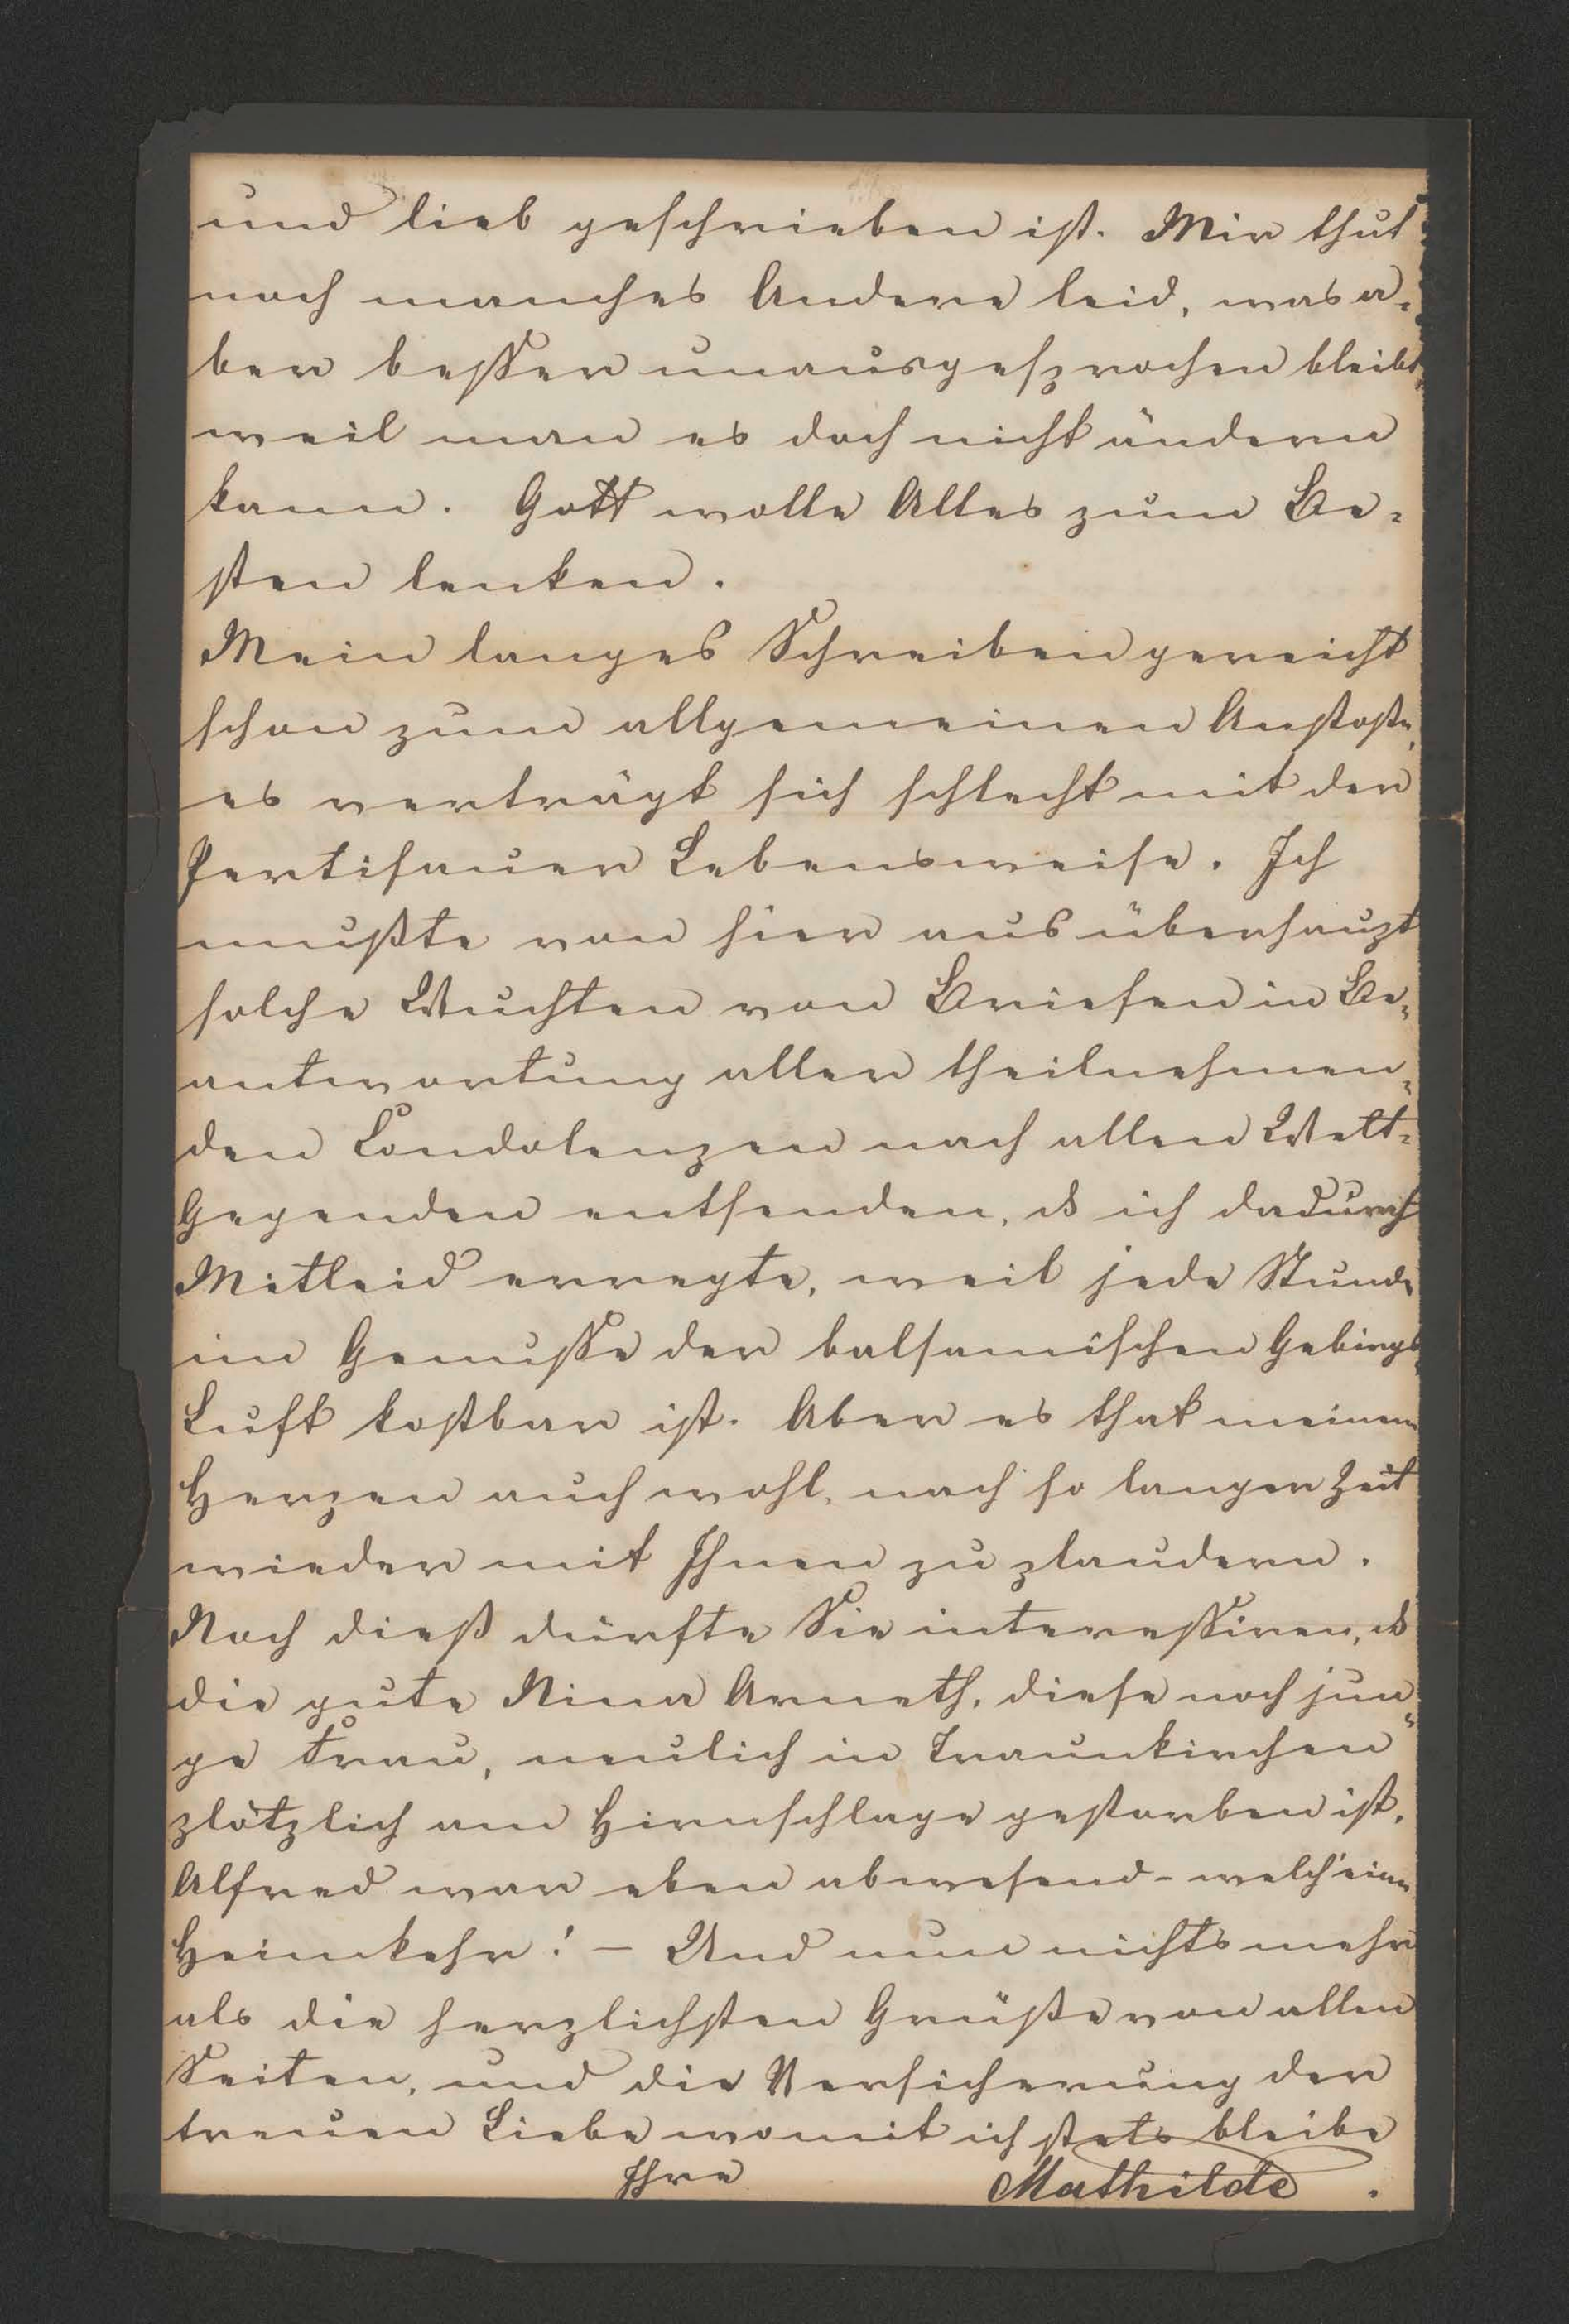 und lieb geschrieben ist. Mir thut
noch manches Andere leid, was a-
ber besser unausgesprochen bleibt,
weil man es doch nicht ändern
kann. Gott wolle Alles zum Be-
sten lenken.
Mein langes Schreiben gereicht
schon zum allgemeinen Anstoße,
es verträgt sich schlecht mit der
Pertisauer Lebensweise. Ich
mußte von hier aus überhaupt
solche Wuchten von Briefen in Be-
antwortung aller theilnehmen-
den Condolenzen nach allen Welt-
Gegenden entsenden, ds ich dadurch
Mitleid erregte, weil jede Stunde
im Genusse der balsamischen Gebirgs-
Luft kostbar ist. Aber es that meinem
Herzen auch wohl, nach so langer Zeit
wieder mit Ihnen zu plaudern.
Noch dieß dürfte Sie interessiren, ds
die gute Nina Arneth, diese noch jun-
ge Frau, neulich in Traunkirchen
plötzlich am Hirnschlage gestorben ist.
Alfred war eben abwesend - welch' eine
Heimkehr! – Und nun nichts mehr
als die herzlichsten Grüße von allen
Seiten, und die Versicherung der
treuen Liebe womit ich stets bleibe
Ihre Mathilde.